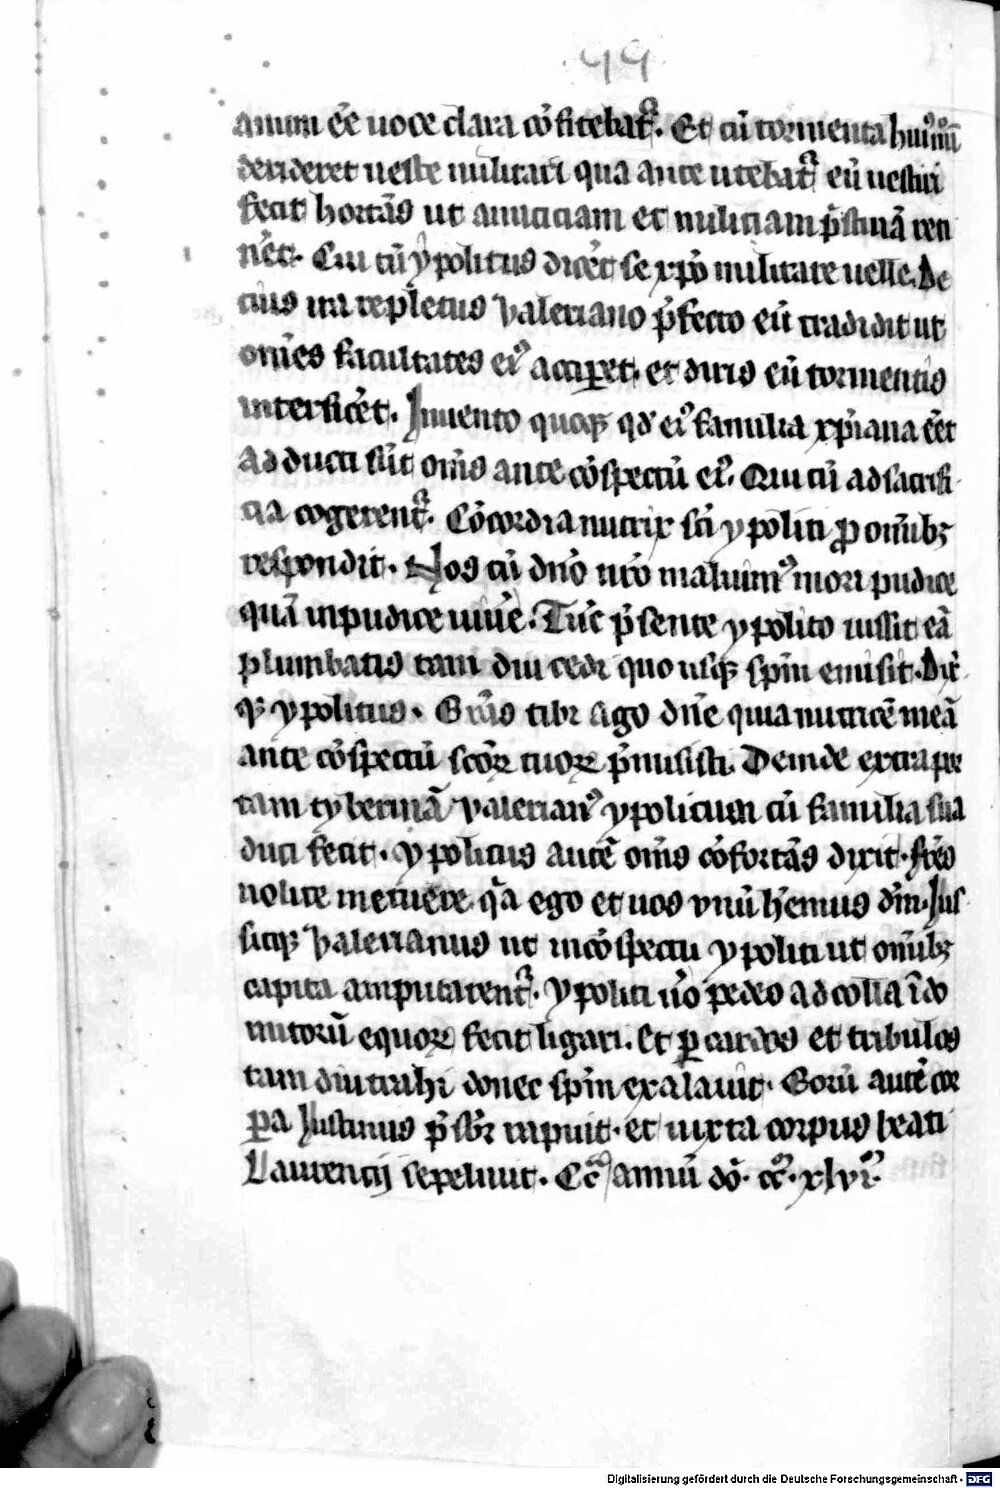 99
anum ēe uoce clara cōfitebat᷑. Et cū tormenta huiꝰmōi
derideret ueste militari qua ante utebat᷑ eū uestiri
fecit hortās ut amiciciam et miliciam p̄stinā reti
nēt. Cui cū ypolitus dicēt se xp̄o militare uelle. De
cius ira repletus Valeriano p̄fecto eū tradidit ut
om̄es facultates eiꝰ acciꝑet. et duris eū tormentis
interficēt. Inuento quoqꝫ qd̓ eiꝰ familia xp̄iana ēēt
adducti sūt om̄s ante cōspectū eiꝰ. Qui cū ad sacrifi
cia cogerent᷑. Cōcordia nutrix sc̄i ypoliti ꝓ om̄ibꝫ
respondit. Nos cū dn̄o nr̄o maluimꝰ mori pudice
quā inpudice uiuē. Tūc p̄sente ypolito iussit eā
plumbatis tam diu cedi quousqꝫ sp̄m emisit. Dix̄
qꝫ ypolitus. Grās tibi ago dn̄e quia nutricē meā
ante cōspectū sc̄oꝝ tuoꝝ p̄misisti. Deinde extra por
tam tyberinā Valerianꝰ ypolitum cū familia sua
duci fecit. ypolitus autē om̄s cōfortās dixit. fr̄es
nolite metuere. qa ego et uos vnū hēmus dm̄. Jus
sitqꝫ Valerianus ut in cōspectu ypoliti ut om̄ibꝫ
capita amputarent᷑. ypoliti ūo pedes ad colla īdo
mitorū equoꝝ fecit ligari. Et ꝑ cardos et tribulos
tam diu trahi donec sp̄m exalauit. Eorū autē cor
ꝑa Justinus p̄sbr̄ rapuit. et iuxta corpus beati
Laurencij sepeliuit. Cc̄ᵃ annū dō. ccꝰ. xlviꝰ.
Digitalisierung gefördert durch die Deutsche Forschungsgemeinschaft - DFG